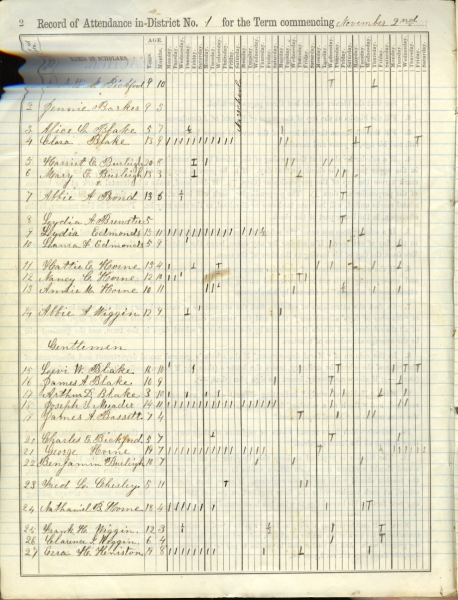 2 Record of Attendance in District No. 1 for the Term commencing November 2nd
AGE.
NAMES OF SCHOLARS.
Years. Months. Monday. Tuesday. Wednesday. Thursday. Friday. Saturday.
Bickford 9 10
2 Jennie Barker 9 3
3 Alice C. Blake 5 7
4 Clara Blake 13 9
5 Harriet A. Burleigh 10 8
6 Mary E. Burleigh 13 3
7 Abbie A. Bond 13 6
8 Lydia A. Brewster 5
9 Lydia Edmonds 13 10
10 Laura F. Edmonds 5 9
11 Hattie E. Horne 13 4
12 Nancy C. Horne 12 10
13 Annie M. Horne 10 11
14 Abbie A. Wiggin 12 9
Gentlemen
15 Levi W. Blake 16 10
16 James A. Blake 10 9
17 Arthur D. Blake 3 10
18 Joseph S. Meader 14 11
19 James A. Bassett 7 4
20 Charles E. Bickford 5 7
21 George Horne 14 7
22 Benjamin Burleigh 11 7
23 Fred L. Chesley 5 11
24 Nathaniel B. Horne 12 4
25 Frank H. Wiggin 12 3
26 Clarence F. Wiggin 6 4
27 Ezra H. Heniston 14 8